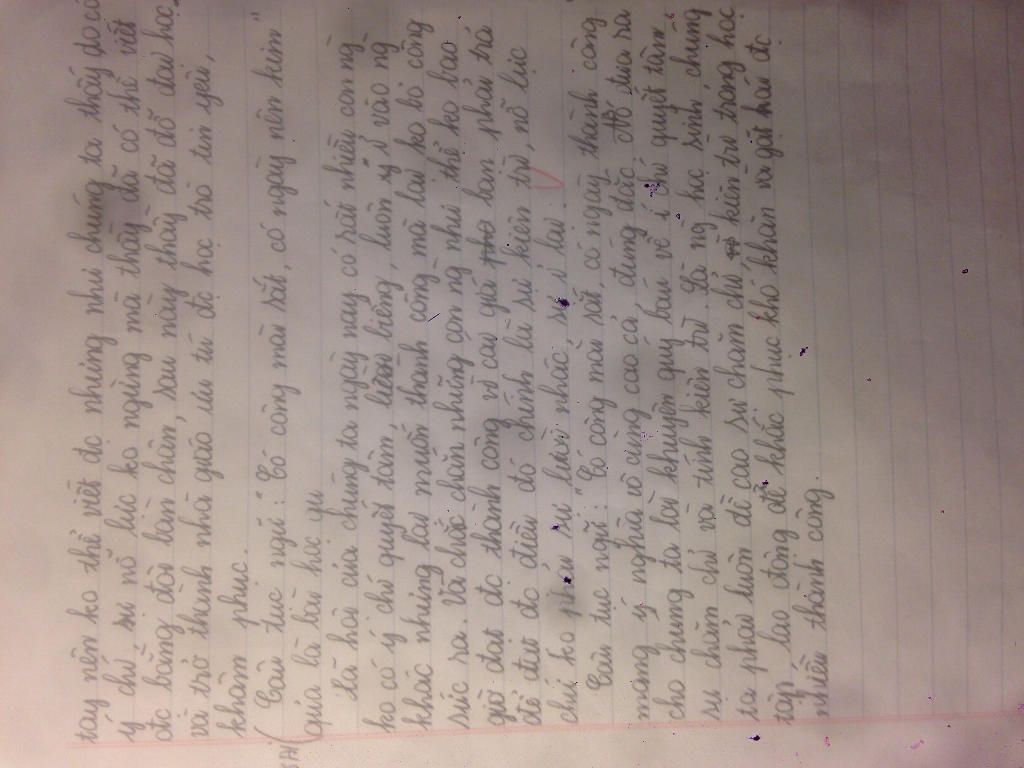 tay nên ko thể viết đc nhưng như chúng ta thấy do có
ý chí, sự nỗ lực ko ngừng mà thầy đã có thể viết
đc bằng đôi bàn chân, sau này thầy đã đỗ đại học
và trở thành nhà giáo ưu tú đc học trò tin yêu,
khâm phục.
Câu tục ngữ: "Có công mài sắt, có ngày nên kim"
quả là bài học quý
Xã hội của chúng ta ngày nay có rất nhiều con ng
ko có ý chí quyết tâm, lười biếng, luôn ỷ vào ng
khác nhưng lại muốn thành công mà lại ko bỏ công
sức ra. Và chắc chắn những con ng như thế ko bao
giờ đạt đc thành công vì cái giá bạn phải trả
để đạt đc điều đó chính là sự kiên trì, nỗ lực
chứ ko phải sự lười nhác, sự ỷ lại.
Câu tục ngữ: "Có công mài sắt, có ngày thành công
mang ý nghĩa vô cùng cao cả, đúng đắc. Nó đưa ra
cho chúng ta lời khuyên quý báu về ý chí quyết tâm
sự chăm chỉ và tính kiên trì. Là ng học sinh chúng
ta phải luôn đề cao sự chăm chỉ kiên trì trong học
tập, lao động để khắc phục khó khăn và gặt hái đc
nhiều thành công.